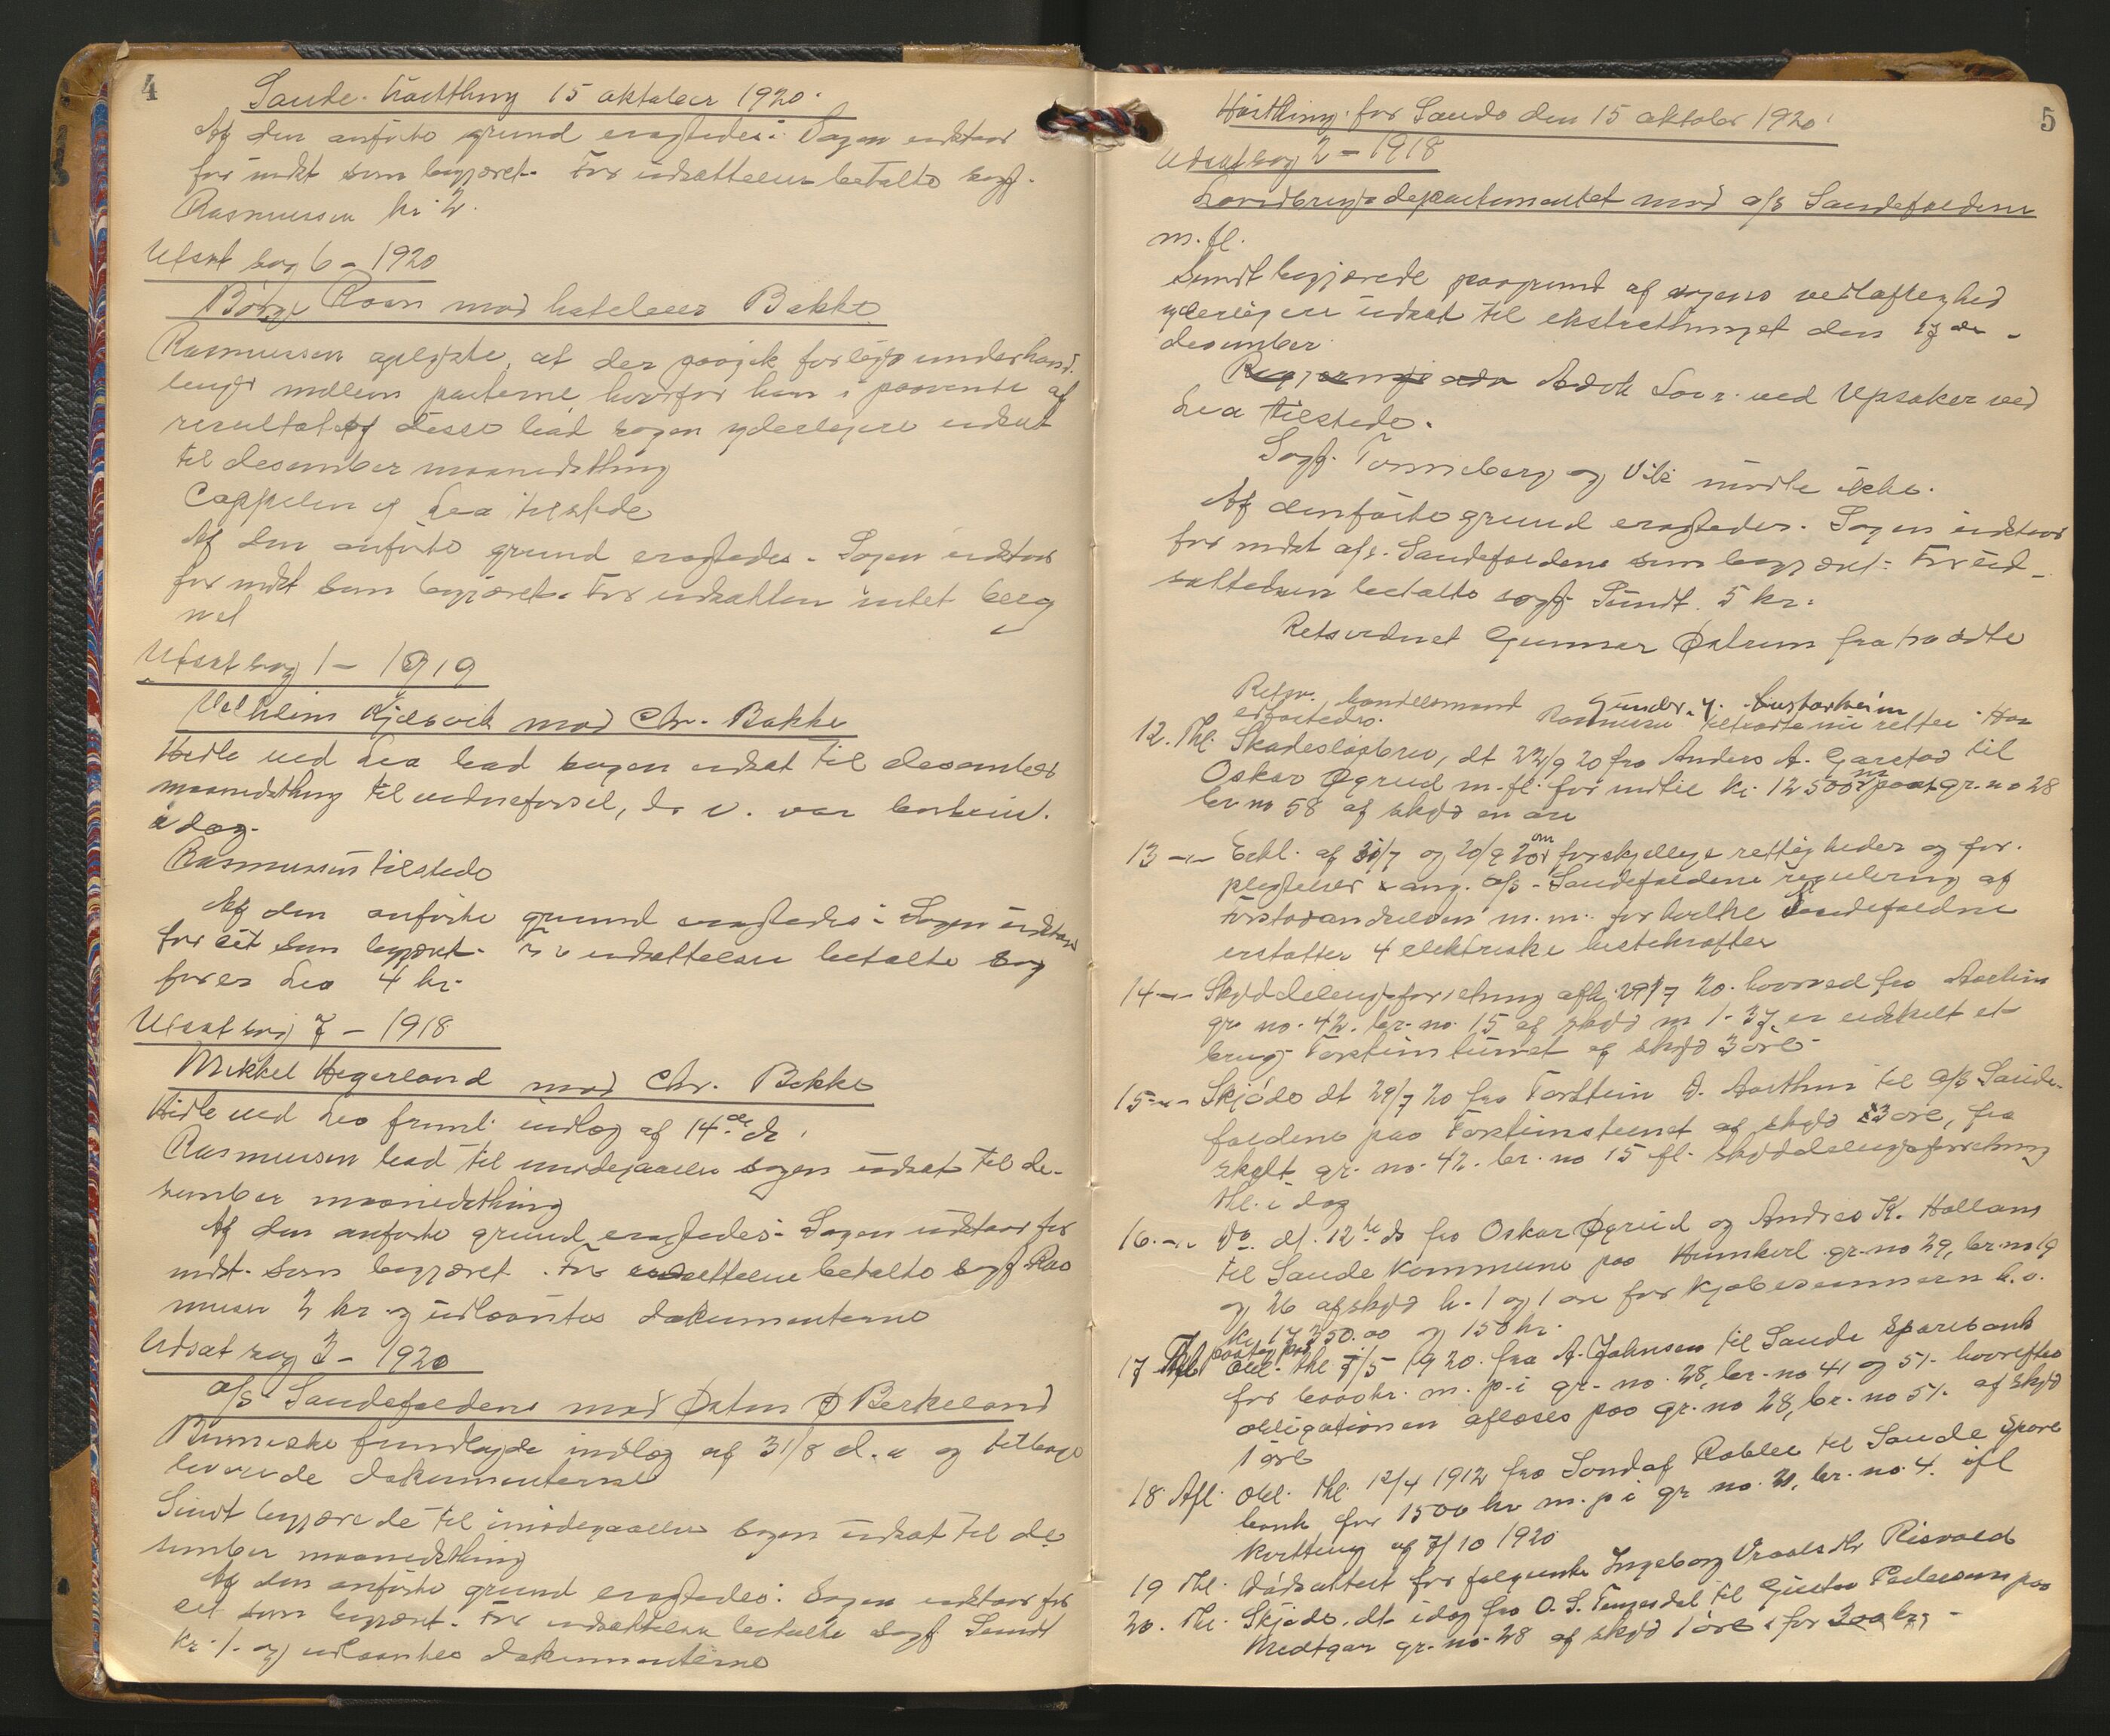 4
Saude. høstthing 15 oktober 1920.
Af den anførte grund eragtedes: Sagen utstaar
for indst som begjæret. For udsættelsen betalte sagf.
Rasmussen kr. 2.
Utsat sag 6 - 1920
Børge Roen mod hoteleier Bakke
Rasmussen oplyste, at der paagik forligsunderhand
linger mellem parterne, hvorfor han i paavente af
resultatet af disse bad sagen yderligere udsat
til desember maanedsthing
Cappelen og Lea tilstede
Af den anførte grund eragtedes. Sagen udstaar
for indst som begjæret. For udsættelsen intet bereg
net
Utsat sag 1 - 1919
Vilhelm Kjølsvik mod Chr. Bakke
Hirdle ved Lea bad sagen udsat til desember
maanedsthing til vidneførsel, da v. var
i dag.
Rasmussen tilstede
Af den anførte grund eragtedes: Sagen udstaar
for set som begjæret. For udsættelsen betalte sag
fører Lea 4 kr.
Utsat sag 7 - 1918
Mikkel Hegerland mod Chr. Bakke
Hirdle ved Lea freml. indlæg af 14de ds.
Rasmussen bad til imødegaaelse sagen udsat til de-
sember maanedsthing
Af den anførte grund eragtedes: Sagen udstaar for
indst. som begjæret. For udsættelsen betalte sagf. Ras
mussen 2 kr. og udlaantes dokumenterne
Udsat sag 3 - 1920
a/s Saudefaldene mod Østen Ø Berkeland
fremlagde indlæg af 31/8 d. a og tilbage
leverede dokumenterne
Sundt begjærede til imødegaaelse sagen udsat til de-
sember maanedsthing
Af den anførte grund eragtedes: Sagen udstaar for
set som begjæret. For udsættelsen betalte sagf Sundt
kr. 1. og udlaantes dokumenterne
5
Høstthing for Saude den 15 oktober 1920.
Udsat sag 2 - 1918
Landbrugsdepartementet mod a/s Saudefaldene
m. fl.
Sundt begjærede paa grund af sagens vidløftighed
yderligere udsat til ekstrathinget den 17 de
desember.
Advok ved Upsaker ved
Lea tilstede.
Sagf. Tønneberg og Vik mødte ikke.
Af den førte grund eragtedes. Sagen udstaar
for indst a/s. Saudefaldene som begjæret. For ud-
sættelsen betalte sagf. Sundt. 5 kr.
Retsvidnet Gunnar Østrem fratraadte
Retsv. handelsmand Gunder J.
Rasmussen tiltraadte nu retten
12. Thl. Skadesløsbrev, dt 22/9 20 fra Anders A. Garstad til
Oskar Øgrud m. fl. for indtil kr. 12500 m pant gr. no 28
br no 58 af skyld en øre
13 -"- Erkl. af 31/7 og 20/9 20 om forskjellige rettigheder og for-
pligtelser ang. a/s. Saudefaldene regulering af
m. m. for hvilke Saudefaldene
erstatter 4 elektriske hestekræfter
14 -"- Skylddelingsforretning afh. 29/7 20. hvorved fra Aarthun
gr. no. 42. br. no. 15 af skyld m 1. 37 er utskilt et
brug Torsteinstunet af skyld 3 øre.
15 -"- Skjøde dt 29/7 20 fra Torstein D. Aarthun til a/s Saude-
faldene paa Torsteinstunet af skyld 3 øre, fra
skylt gr. no. 42. br. no 15 fl. skylddelingsforretning
thl. i dag
16. -"- Do. dt. 12te ds fra Oskar Øgrud og Andreas K. Holland
til Saude Kommune paa gr. no 29, br. no 19
og 26 af skyld h. 1 og 1 øre for kjøbesummen h. o.
kr. 17,250.00 og 150 kr.
17 Obl. thl. 7/5 1920. fra A. Johnsen til Saude Sparebank
for 6000 kr. m. p. i gr. no. 28, br. no 41 og 51. hvorefter
obligationen afløses paa gr. no 28, br. no 51. af skyld
1 øre
18. Afl. obl. thl. 12/4 1912 fra til Saude Spare
bank for 1500 kr m. p i gr no. 21, br. no. 4. ifl
kvittering af 7/10 1920
19 Thl. Dødsattest for Ingeborg Risvold
20. Thl. Skjøde, dt. idag fra O. S. Tengesdal til Gustav Pedersen paa
Medtgar gr. no. 28 af skyld 1 øre for 300 kr. -